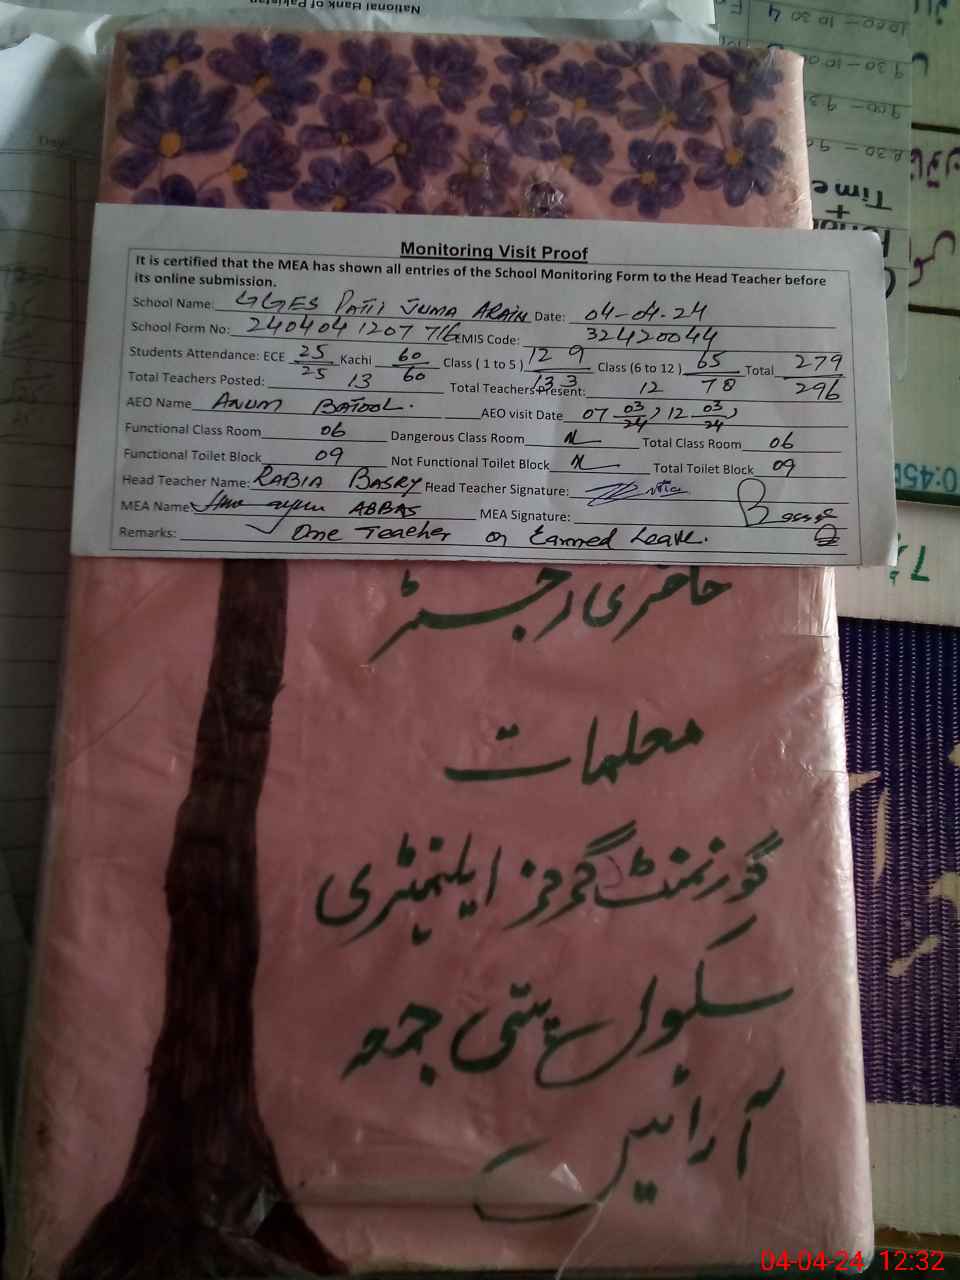 National Bank of Pakistan
Monitoring Visit Proof
It is certified that the MEA has shown all entries of the School Monitoring Form to the Head Teacher before
its online submission.
School Name: GGES PATTI JUMA ARAIN Date: 04-04-24
School Form No: 240404120771 EMIS Code: 32420044
Students Attendance: ECE 25/25 Kachi 60/60 Class ( 1 to 5 ) 129/133 Class (6 to 12 ) 65/78 Total 279/296
Total Teachers Posted: 13 Total Teachers Present: 12
AEO Name ANUM BATOOL. AEO visit Date 07 03/24, 12 03/24,
Functional Class Room 06 Dangerous Class Room Total Class Room 06
Functional Toilet Block 09 Not Functional Toilet Block Total Toilet Block 09
Head Teacher Name: RABIA BASRY Head Teacher Signature:
MEA Name ABBAS MEA Signature:
Remarks: One Teacher on Earned Leave.
حاضری رجسٹر
معلمات
گورنمنٹ گرلز ایلیمنٹری
سکول پتی جمہ
آرائیں
Time
04-04-24 12:32